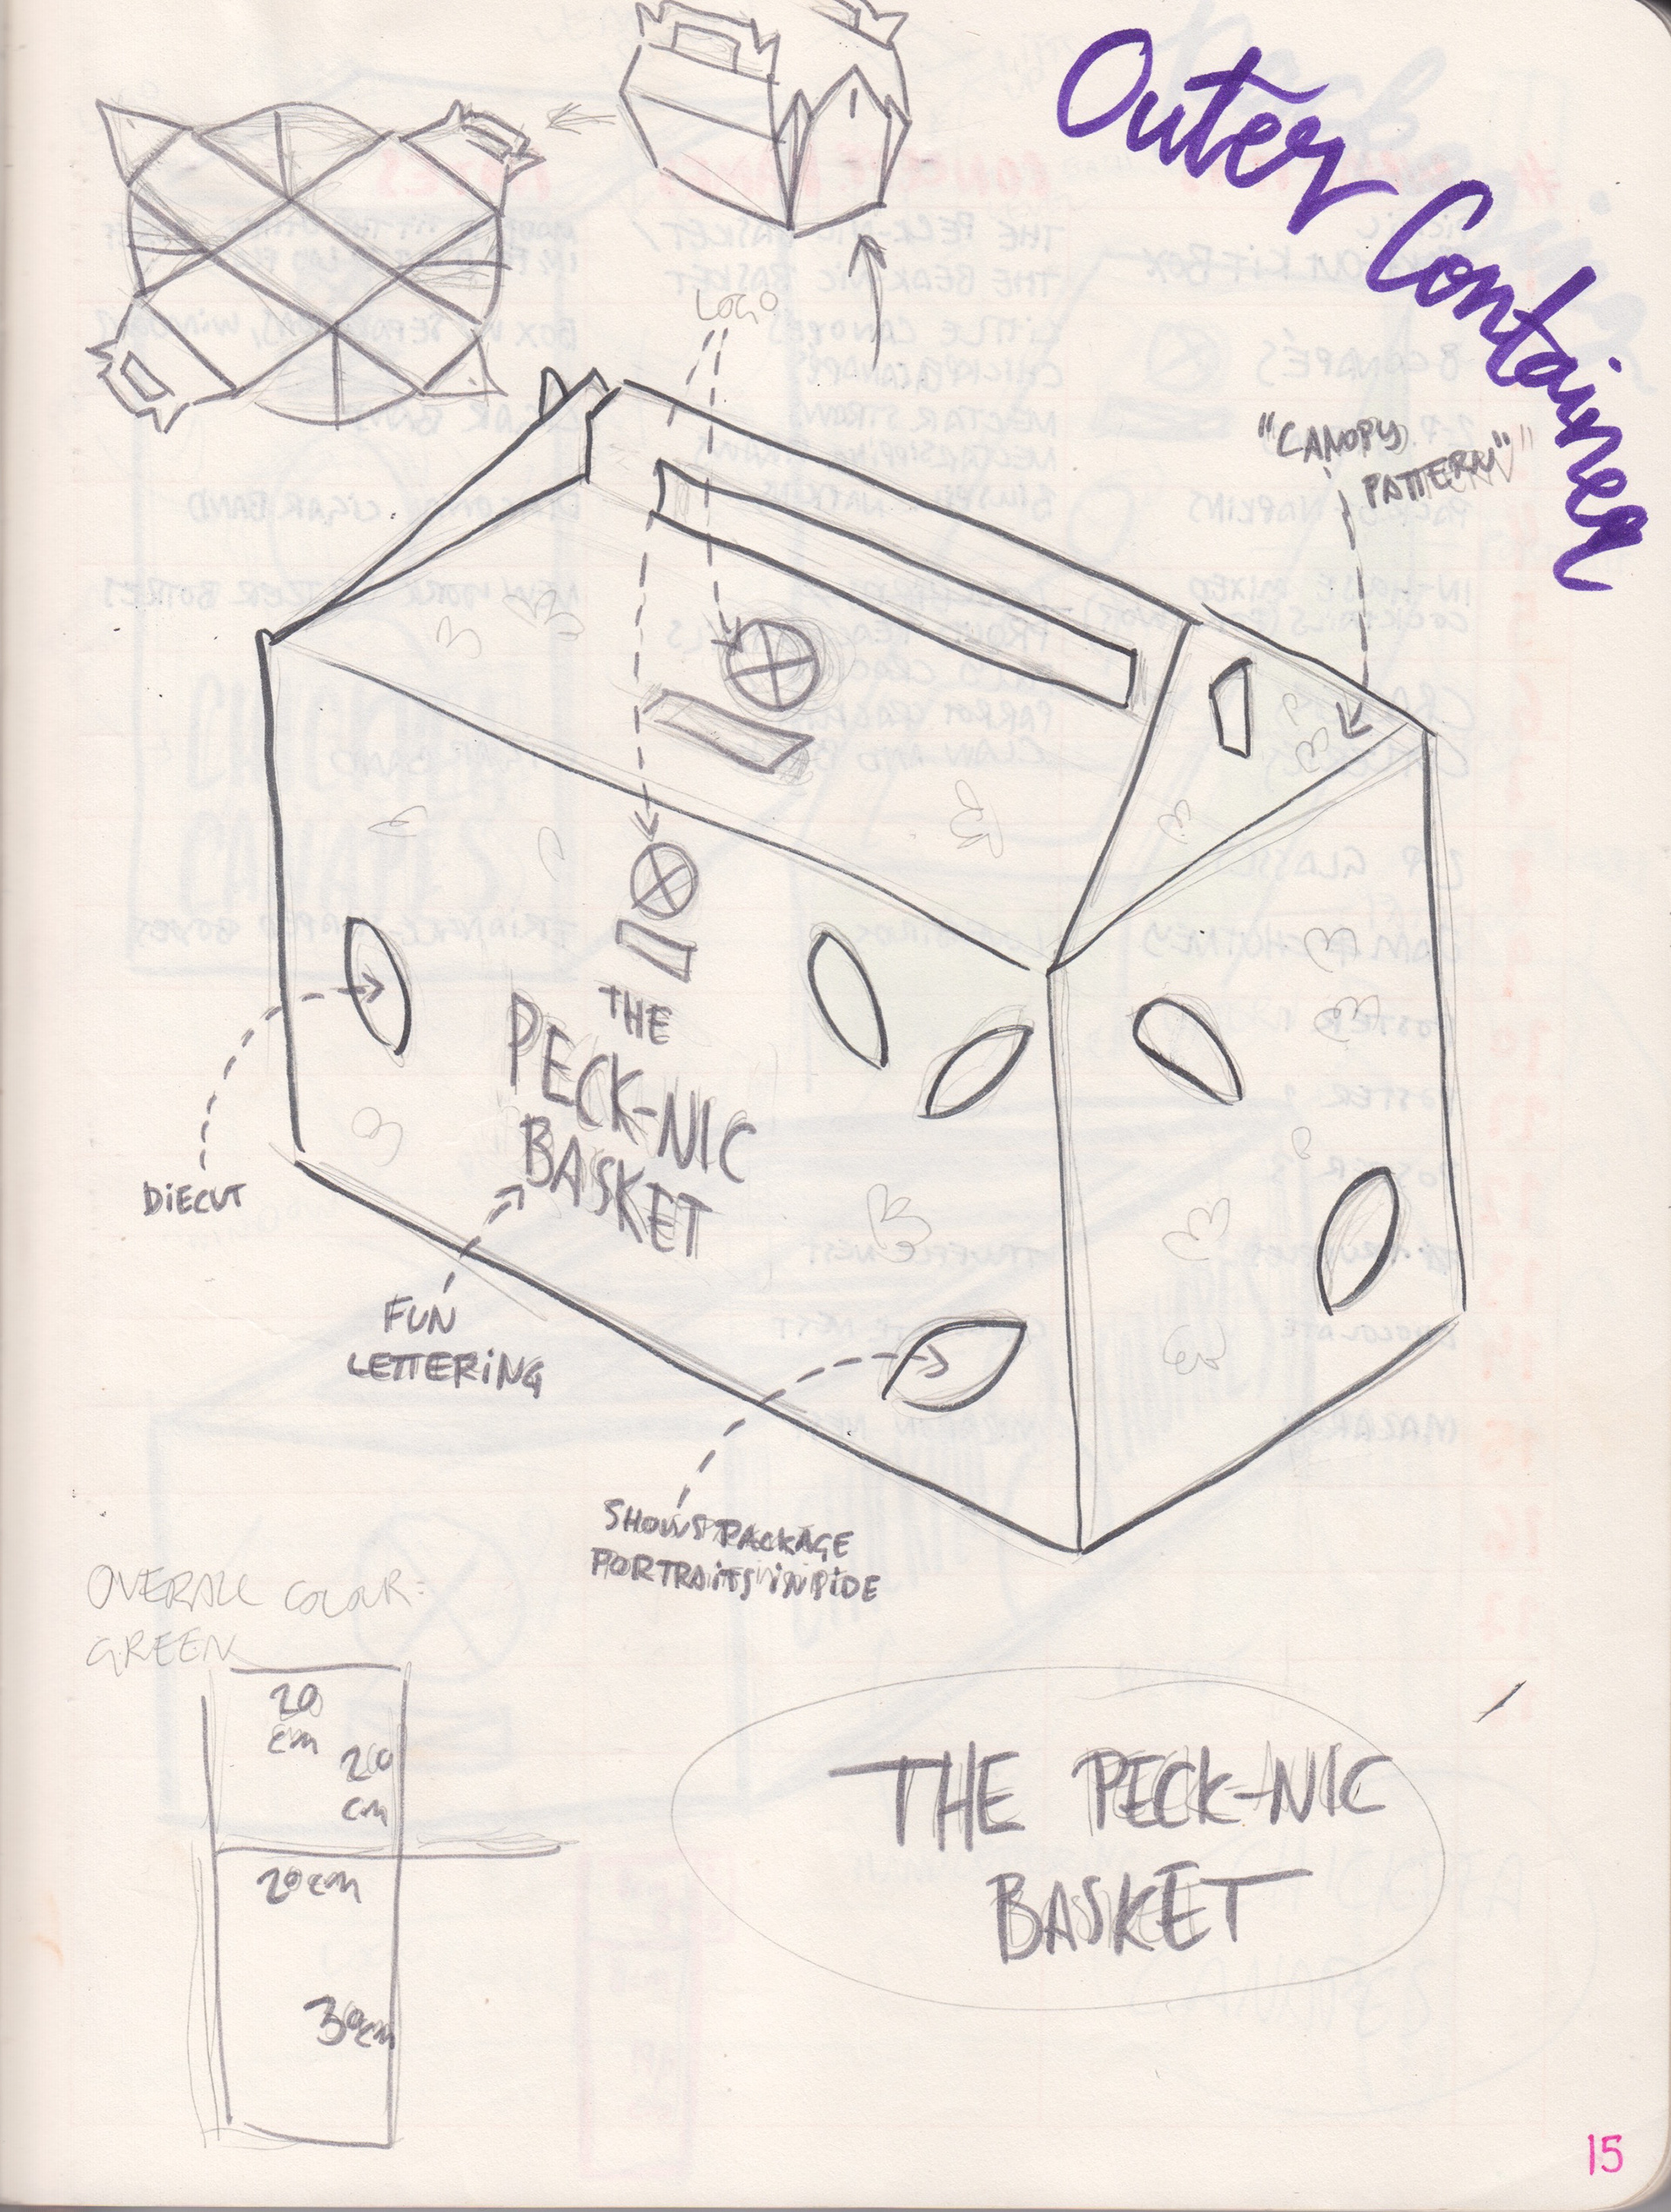 Outer Container
LOGO
"CANOPY
PATTERN"
THE
PECK-NIC
BASKET
DIECUT
FUN
LETTERING
SHOWS PACKAGE
PORTRAITS INSIDE
OVERALL COLOUR:
GREEN
20
cm
20
cm
20cm
30cm
THE PECK-NIC
BASKET
15